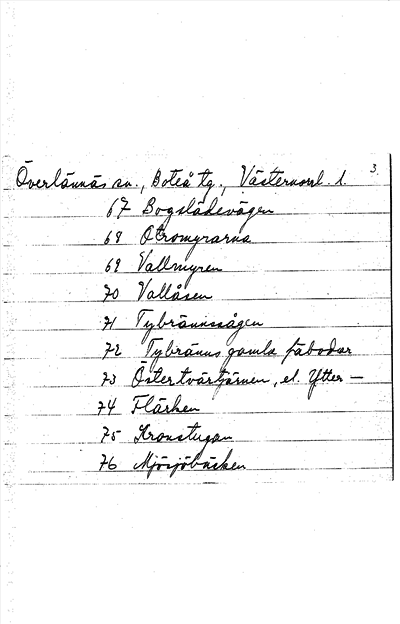 Överlännäs sn., Boteå tg., Västernorrl. l. 3.
67 Bogslådevägen
68 Otromyrarna
69 Vallmyren
70 Vallåsen
71 Tybrännssågen
72 Tybränns gamla fäbodar
73 Östertvärtjärnen, el. Ytter —
74 Flärken
75 Kronstugan
76 Mjösjöbäcken